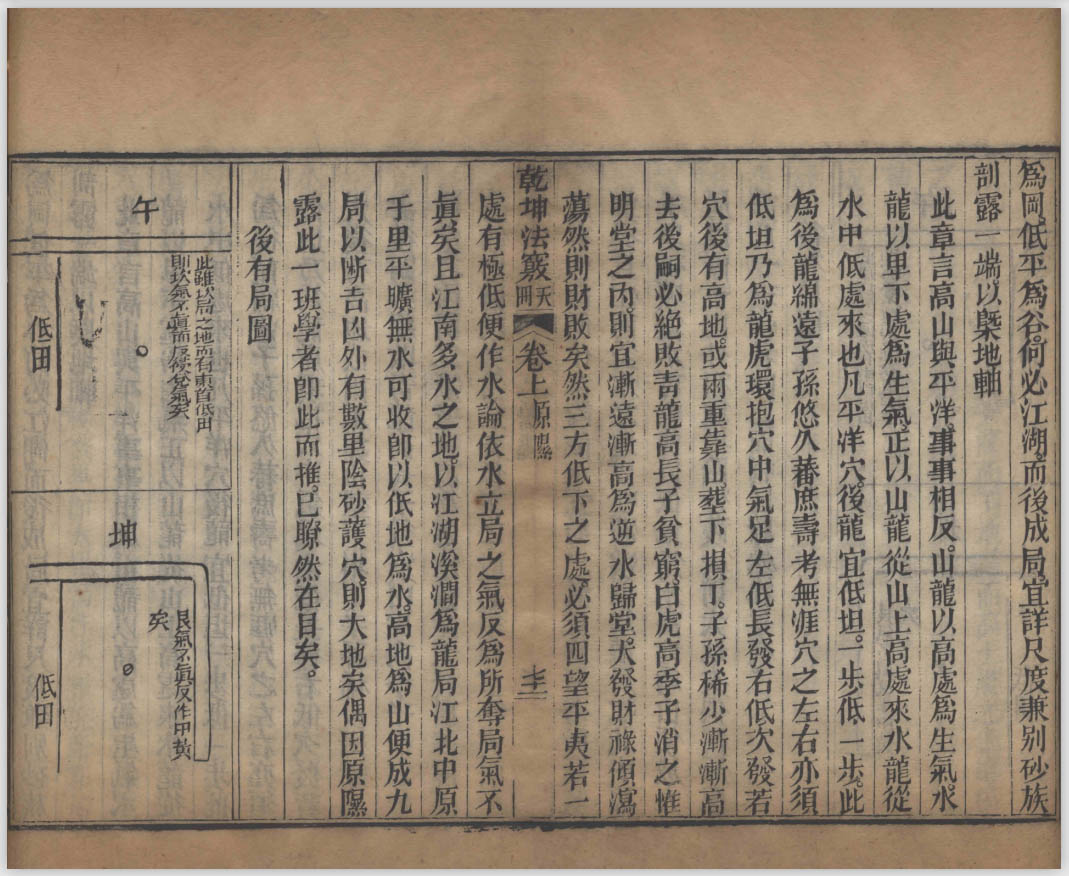 為岡。低平為谷。何必江湖。而後成局。宜詳尺度兼別砂族
剖露一端。以槩地軸
此章言高山與平洋。事事相反。山龍以高處為生氣。水
龍以卑下處為生氣。正以山龍從山上高處來水龍從
水中低處來也凡平洋穴。後龍宜低坦。一步低一步。此
為後龍綿遠子孫悠久蕃庶壽考無涯穴之左右亦須
低坦乃為龍虎環抱穴中氣足左低長發右低次發若
穴後有高地。或兩重靠山塟下損丁。子孫稀少漸漸高
去後嗣必絶敗青龍高長子貧窮。白虎高季子消之惟
明堂之內。則宜漸遠漸高為逆水歸堂。大發財祿傾瀉
蕩然則財敗矣然三方低下之處。必須四望平夷若一
乾坤法竅
天冊
卷上
原隰
七十二
處有極低便作水論依水立局之氣反為所奪局氣不
眞矣且江南多水之地。以江湖溪澗為龍局江北中原
千里平曠無水可收卽以低地為水。高地為山便成九
局以斷吉凶外有數里陰砂護穴。則大地矣偶因原隰
露此一班學者卽此而推。已瞭然在目矣。
後有局圖
午
低田
此雖坎局之地而有東首低田
則坎氣不眞而反接兌氣矣
坤
低田
艮氣不眞反作甲黃
矣